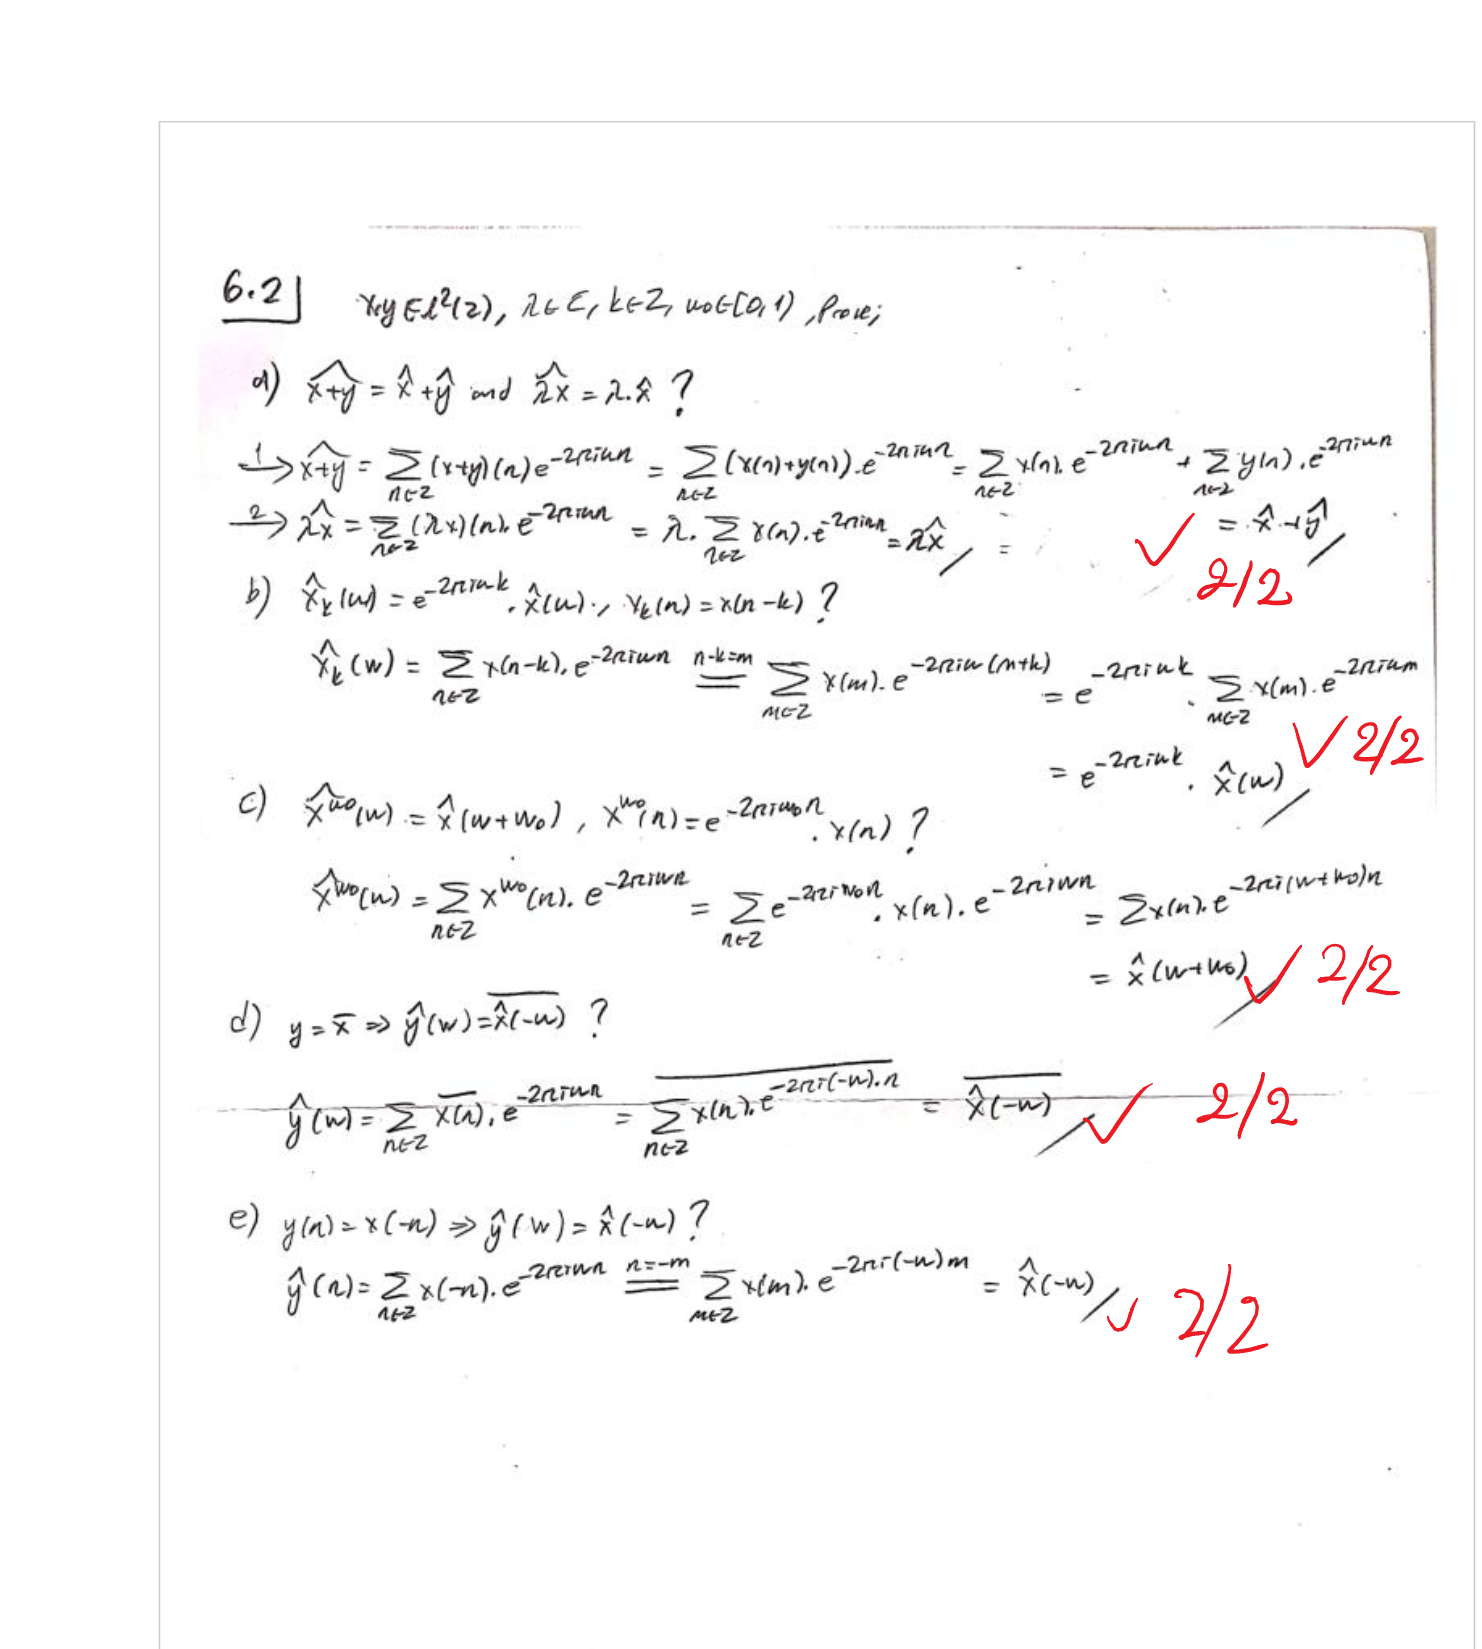 6.2] x,y ∈ l²(Z), λ ∈ C, k ∈ Z, w₀ ∈ [0,1), Prove;
a) \widehat{x+y} = x̂ + ŷ and \widehat{λx} = λ.x̂ ?
1→ \widehat{x+y} = Σ_{n∈Z} (x+y)(n) e^{-2πiwn} = Σ_{n∈Z} (x(n)+y(n)).e^{-2πiwn} = Σ_{n∈Z} x(n).e^{-2πiwn} + Σ_{n∈Z} y(n).e^{-2πiwn}
= x̂ + ŷ /
2→ \widehat{λx} = Σ_{n∈Z} (λx)(n).e^{-2πiwn} = λ. Σ_{n∈Z} x(n).e^{-2πiwn} = λx̂ / = ✓
2/2
b) x̂_k(w) = e^{-2πiwk}.x̂(w)., x_k(n) = x(n-k) ?
x̂_k(w) = Σ_{n∈Z} x(n-k).e^{-2πiwn} \overset{n-k=m}{=} Σ_{m∈Z} x(m).e^{-2πiw(m+k)} = e^{-2πiwk}. Σ_{m∈Z} x(m).e^{-2πiwm}
= e^{-2πiwk}.x̂(w) / ✓ 2/2
c) \widehat{x^{w₀}}(w) = x̂(w+w₀), x^{w₀}(n) = e^{-2πiw₀n}.x(n) ?
\widehat{x^{w₀}}(w) = Σ_{n∈Z} x^{w₀}(n).e^{-2πiwn} = Σ_{n∈Z} e^{-2πiw₀n}.x(n).e^{-2πiwn} = Σx(n).e^{-2πi(w+w₀)n}
= x̂(w+w₀) / ✓ 2/2
d) y = \overline{x} ⇒ ŷ(w) = \overline{x̂(-w)} ?
ŷ(w) = Σ_{n∈Z} \overline{x(n)}.e^{-2πiwn} = \overline{Σ_{n∈Z} x(n).e^{-2πi(-w).n}} = \overline{x̂(-w)} / ✓ 2/2
e) y(n) = x(-n) ⇒ ŷ(w) = x̂(-w) ?
ŷ(n) = Σ_{n∈Z} x(-n).e^{-2πiwn} \overset{n=-m}{=} Σ_{m∈Z} x(m).e^{-2πi(-w)m} = x̂(-w) / ✓ 2/2